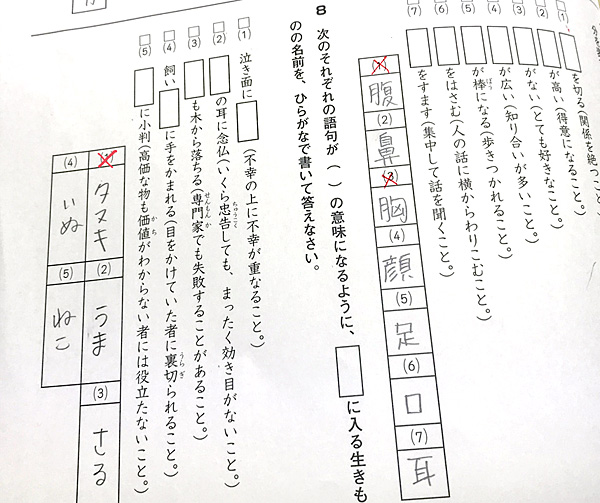 (1) □を切る(関係を絶つこと
(2) □が高い(得意になること。)
(3) □がない(とても好きなこと。)
(4) □が広い(知り合いが多いこと。)
(5) □が棒になる(歩きつかれること。)
(6) □をはさむ(人の話に横からわりこむこと。)
(7) □をすます(集中して話を聞くこと。)
(1) 腹 (2) 鼻 (3) 胸 (4) 顔 (5) 足 (6) 口 (7) 耳
8 次のそれぞれの語句が( )の意味になるように、□に入る生きも
のの名前を、ひらがなで書いて答えなさい。
(1) 泣き面に□(不幸の上に不幸が重なること。)
(2) □の耳に念仏(いくら忠告しても、まったく効き目がないこと。)
(3) □も木から落ちる(専門家でも失敗することがあること。)
(4) 飼い□に手をかまれる(目をかけていた者に裏切られること。)
(5) □に小判(高価な物も価値がわからない者には役立たないこと。)
(1) タヌキ (2) うま (3) さる
(4) いぬ (5) ねこ